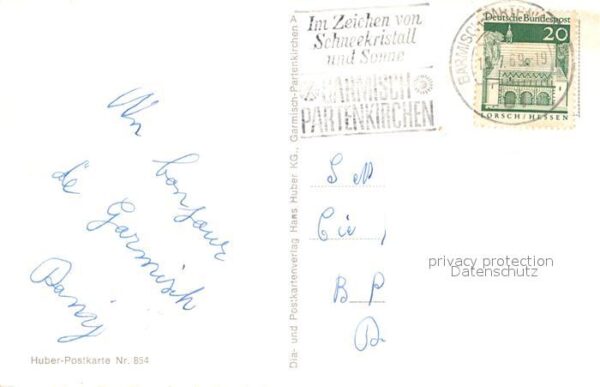 Im Zeichen von
Schneekristall
und Sonne
GARMISCH
PARTENKIRCHEN
Deutsche Bundespost
20
LORSCH/HESSEN
Un bonjour
de Garmisch
Dany
Dia- und Postkartenverlag Hans Huber KG., Garmisch-Partenkirchen A
S M
Cie,
B P
privacy protection
Datenschutz
Huber-Postkarte Nr. 854